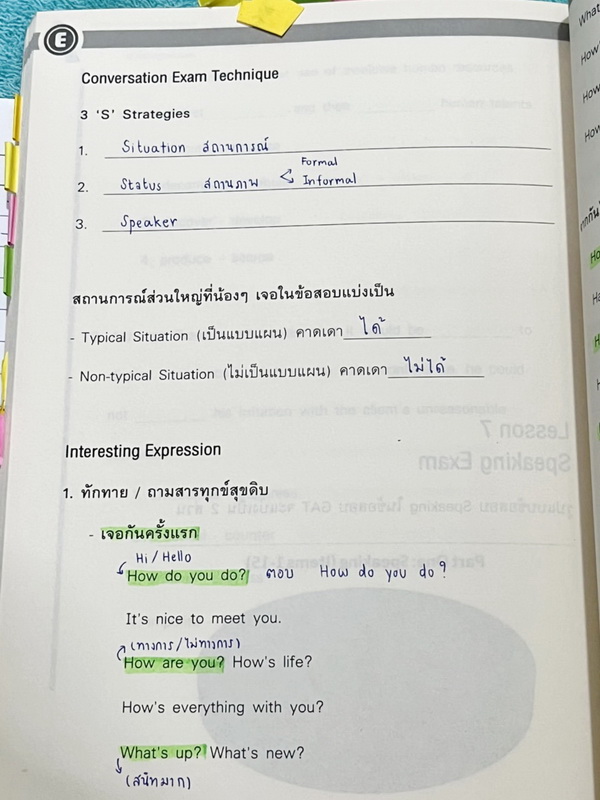 E
Conversation Exam Technique
3 'S' Strategies
1. Situation สถานการณ์
Formal
2. Status สถานภาพ < Informal
3. Speaker
สถานการณ์ส่วนใหญ่ที่น้องๆ เจอในข้อสอบแบ่งเป็น
- Typical Situation (เป็นแบบแผน) คาดเดา ได้
- Non-typical Situation (ไม่เป็นแบบแผน) คาดเดา ไม่ได้
Interesting Expression
1. ทักทาย / ถามสารทุกข์สุขดิบ
- เจอกันครั้งแรก
Hi / Hello
How do you do? ตอบ How do you do?
It's nice to meet you.
(ทางการ/ไม่ทางการ)
How are you? How's life?
How's everything with you?
What's up? What's new?
(สนิทมาก)